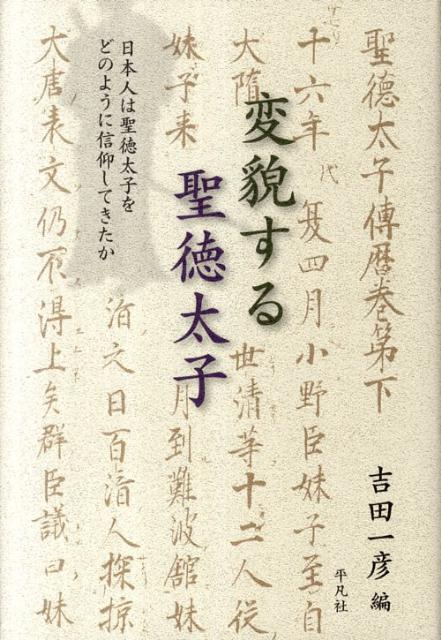 変貌する
聖徳太子
日本人は聖徳太子を
どのように信仰してきたか
吉田一彦 編
平凡社
聖徳太子傳暦巻第下
十六年 代 夏四月小野臣妹子至自
大隋 世清等十二人従
妹子来 月到難波舘妹
沿文日百済人探掠
大唐表文仍不得上矣群臣議曰妹